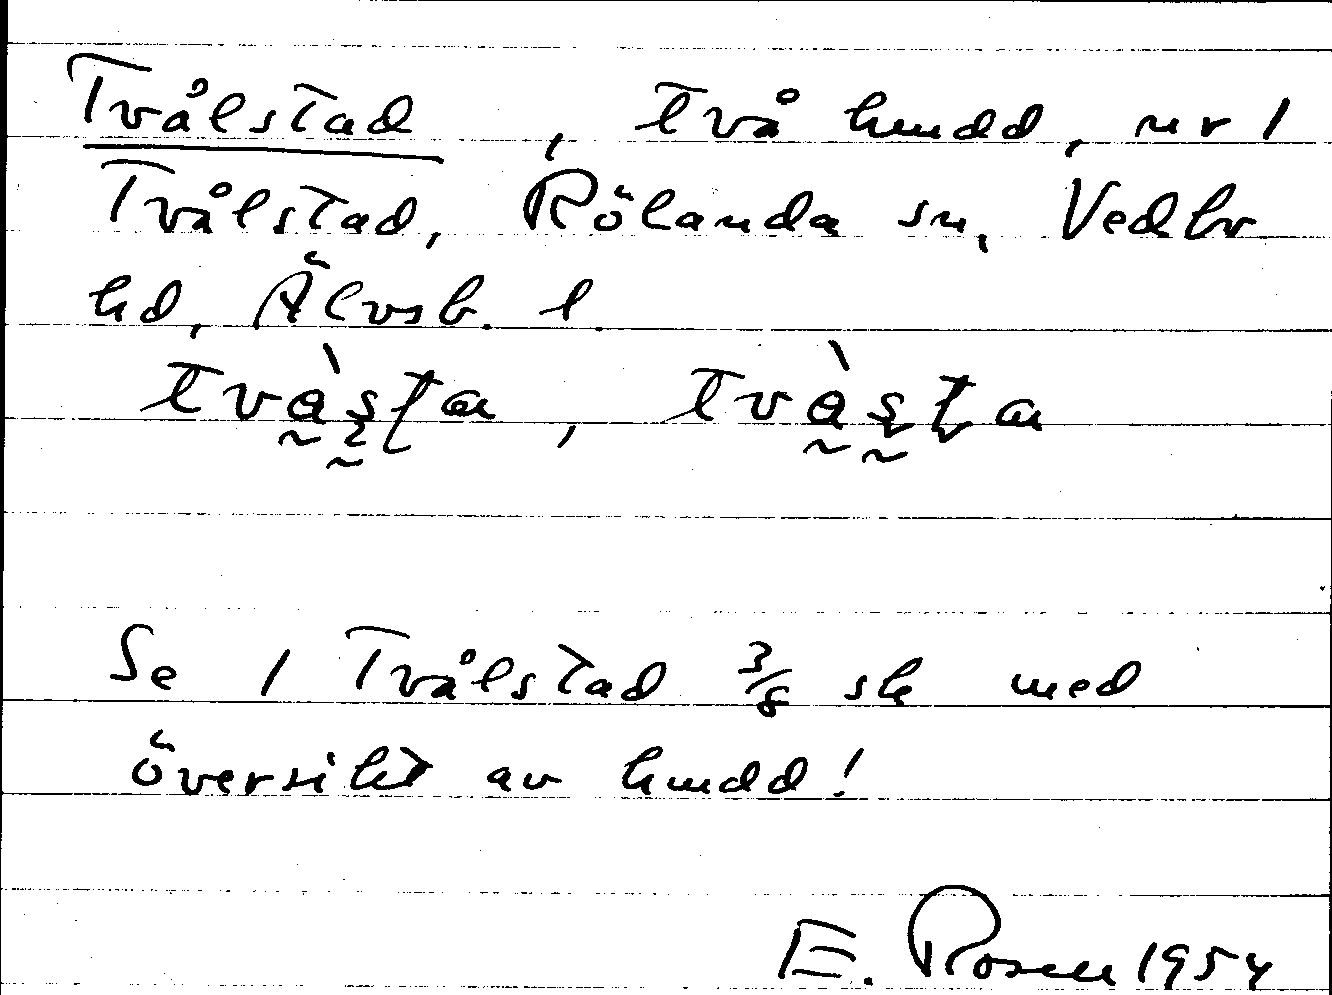 Tvålstad, två hmdd, nr 1
Tvålstad, Rölanda sn, Vedbo
hd, Älvsb. l.
tvàsta, tvàsta
Se 1 Tvålstad 3/8 sk med
översikt av hmdd!
E. Rosell 1954